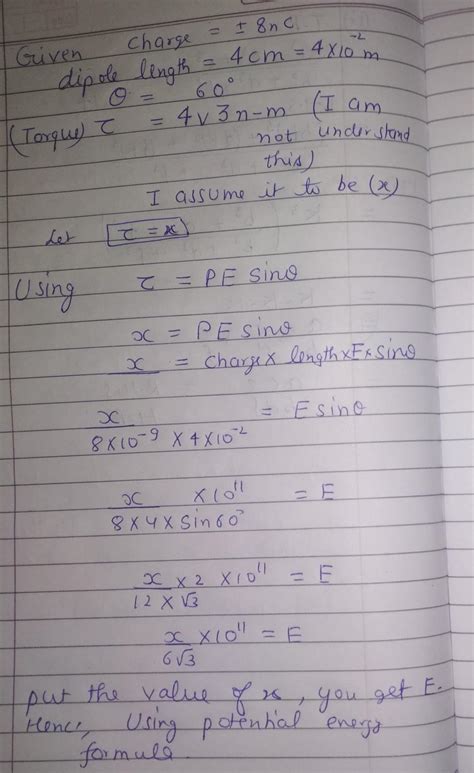 Given charge = ± 8nC
dipole length = 4cm = 4×10⁻² m
θ = 60°
(Torque) τ = 4v3n-m (I am
not understand
this)
I assume it to be (x)
Let τ = x
Using τ = PE Sinθ
x = PE sinθ
x = Charge × length×E×sinθ
x / 8×10⁻⁹ × 4×10⁻² = E sinθ
x / 8×4×Sin60° ×10¹¹ = E
x / 12×√3 × 2 ×10¹¹ = E
x / 6√3 ×10¹¹ = E
put the value of x, you get E.
Hence, Using potential energy
formula.